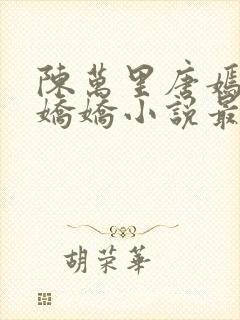 陳萬里唐嫣
嬌嬌小說最
胡荣華